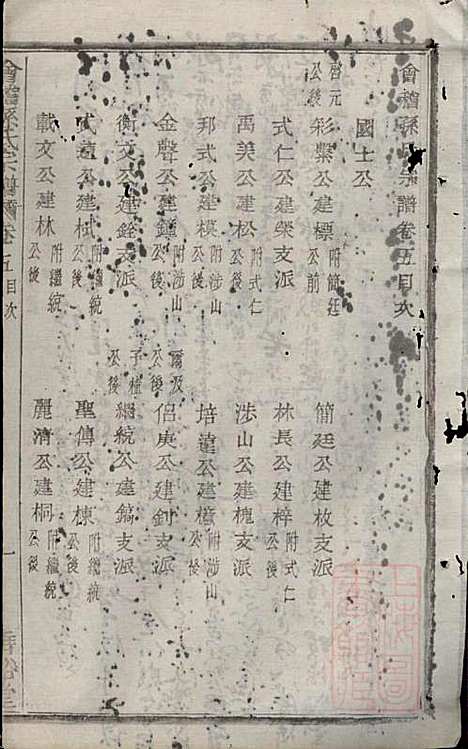 會稽孫氏宗譜卷五目次
國士公
啓元公後
彩繁公建標 附簡廷公前
簡廷公建枚支派
式仁公建榮支派
林長公建梓 附式仁公後
禹美公建松 附式仁公後
涉山公建槐支派
邦式公建模 附涉山公後
培遠公建 附涉山公後
金聲公建鐘 附涉山公後
爾汲公後
侶庚公建釗支派
衡文公建銓支派
子權公後
繼統公建鎬支派
武遠公建 附繼統公後
聖傳公建棟 附繼統公後
載文公建林 附繼統公後
麗清公建桐 附繼統公後
會稽孫氏宗譜 卷五目次
一
堂
上海圖